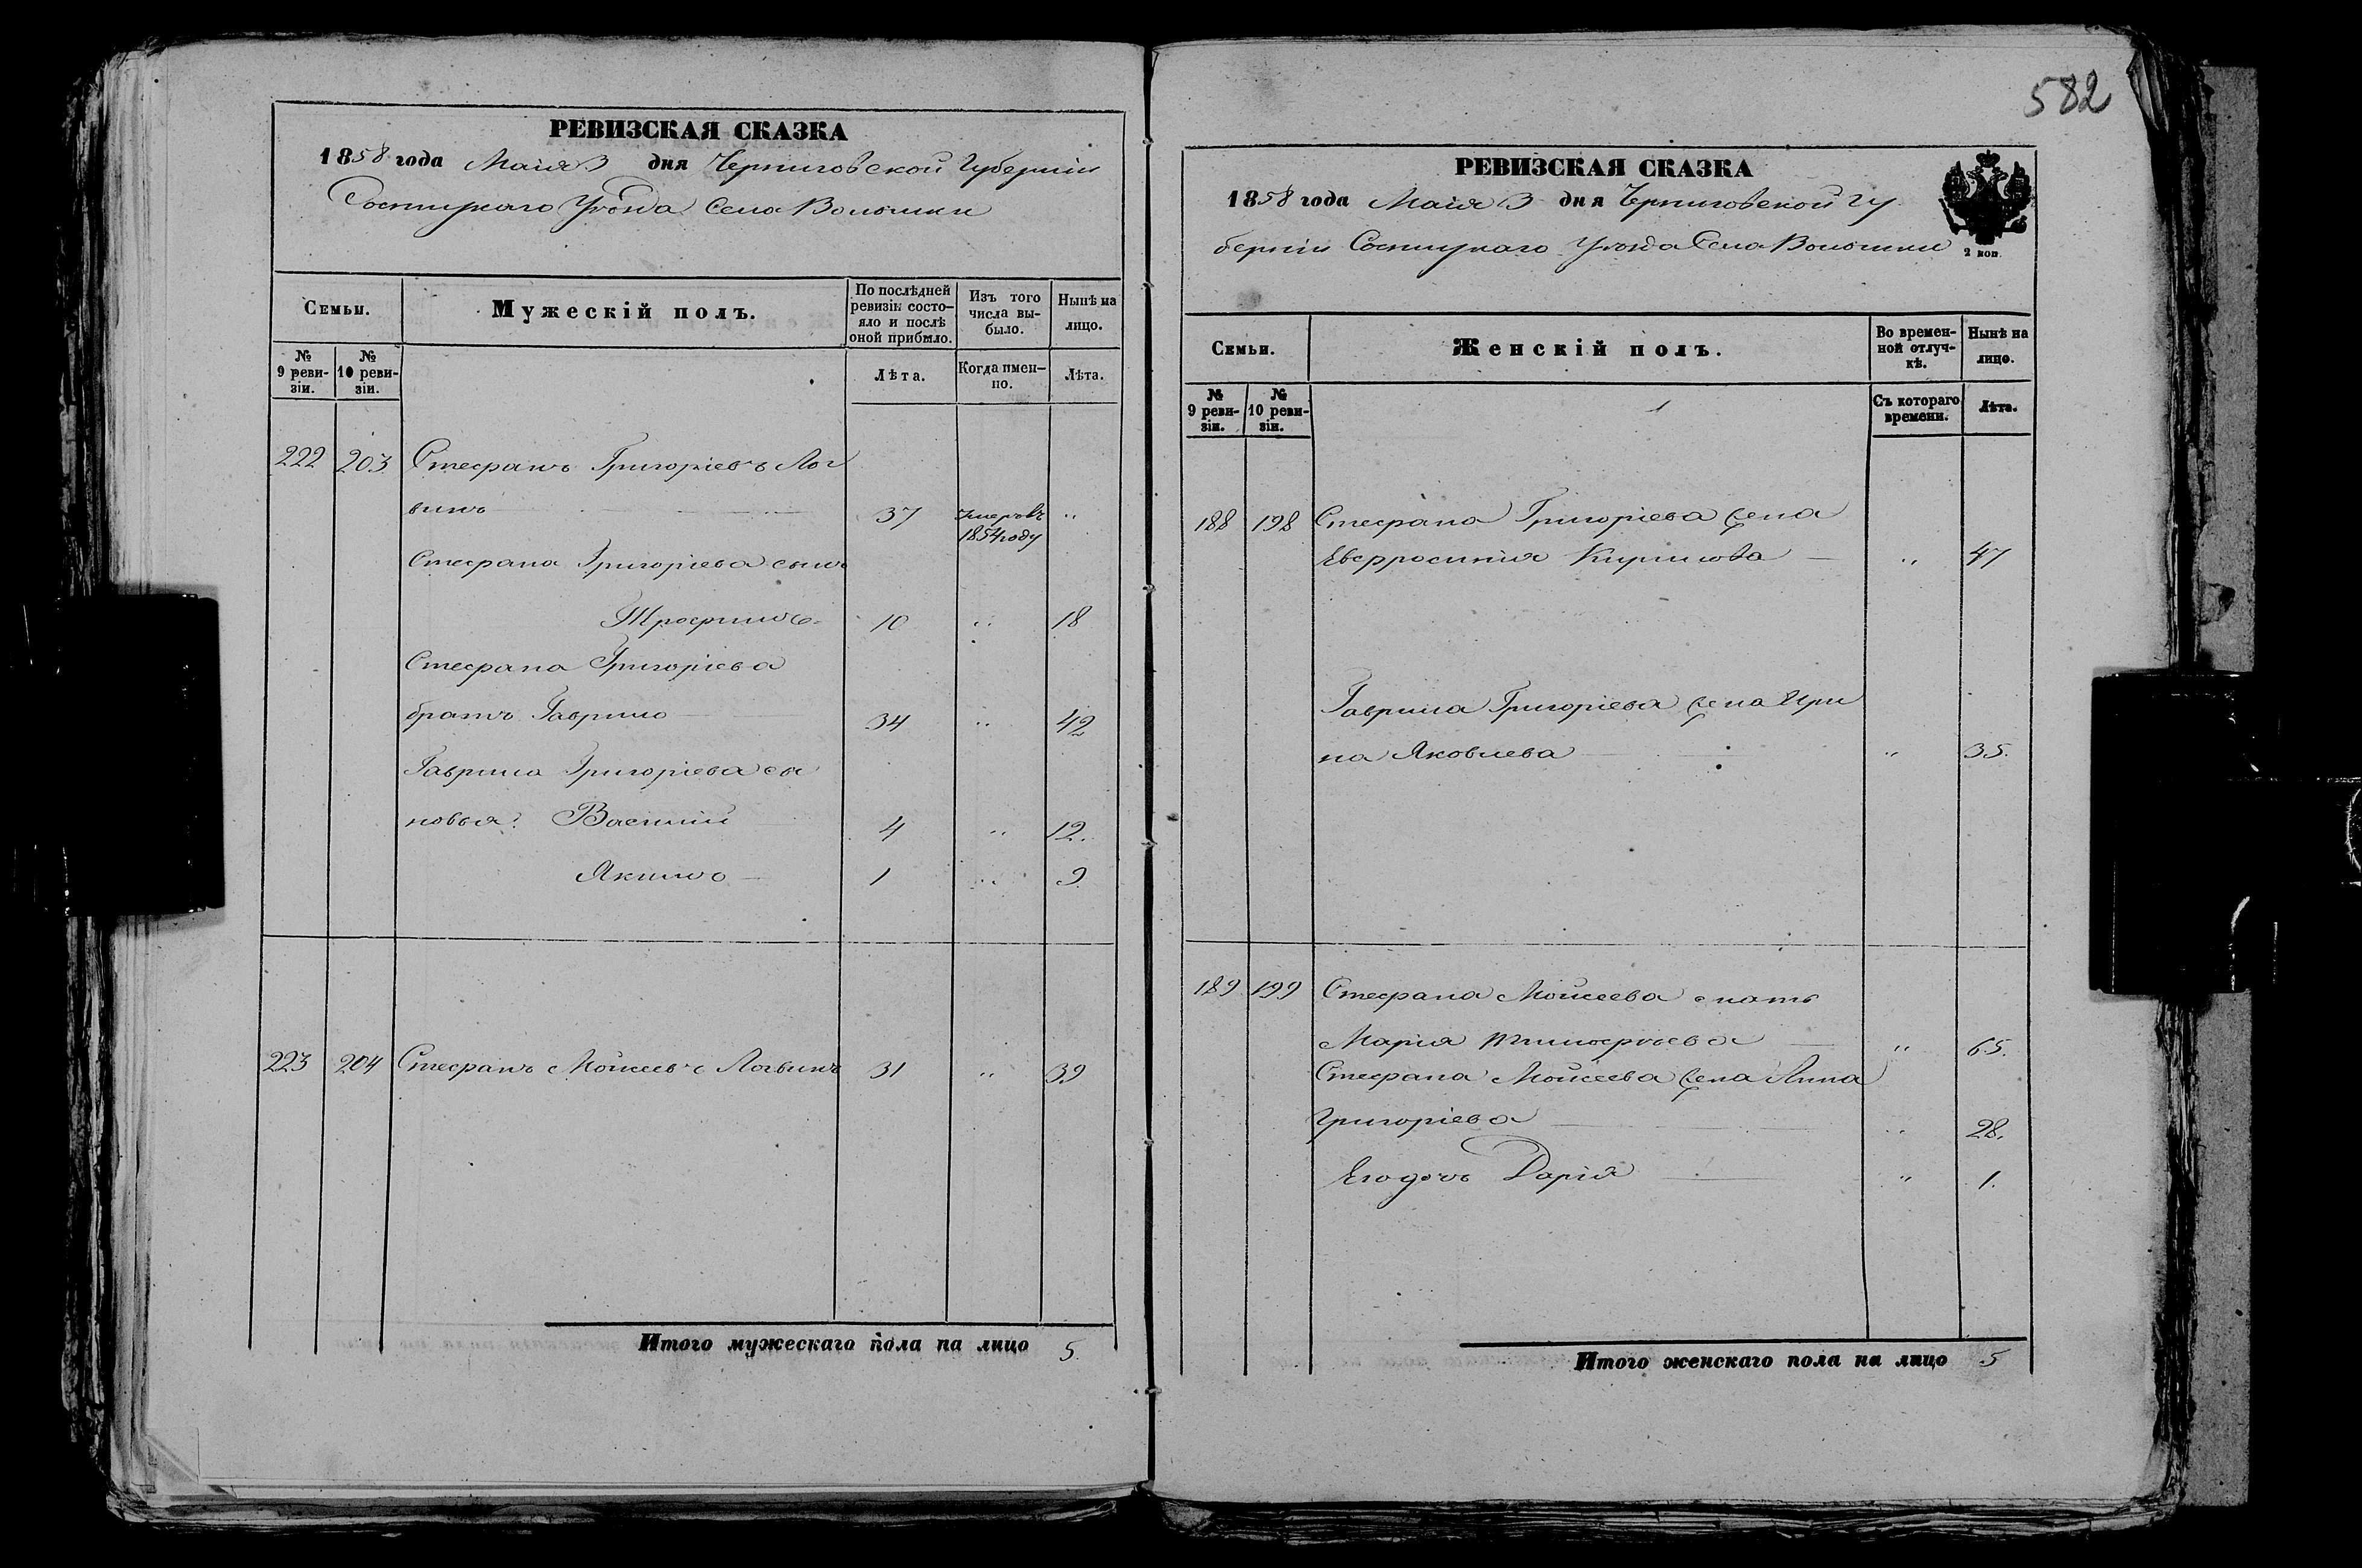 582
РЕВИЗСКАЯ СКАЗКА
1858 года Маія 3 дня Черниговской Губерніи
Сосницкаго Уѣзда Села Волынки
Семьи.
Мужескій полъ.
По послѣдней ревизіи состо-
яло и послѣ
оной прибыло.
Изъ того
числа вы-
было.
Нынѣ на
лицо.
№
9 реви-
зіи.
№
10 реви-
зіи.
Лѣта.
Когда имен-
но.
Лѣта.
222 203 Стефанъ Григоріевъ Лог
винъ 37 Умеръ въ "
1854 году
Стефана Григоріева сынъ
Трофимъ 10 " 18
Стефана Григоріева
братъ Гаврило 34 " 42
Гаврила Григоріева сы
новья: Василій 4 " 12.
Якимъ 1 " 9
223 204 Стефанъ Мойсеевъ Логвинъ 31 " 39
Итого мужескаго пола на лицо 5.
РЕВИЗСКАЯ СКАЗКА
1858 года Маія 3 дня Черниговской Гу
берніи Сосницкаго Уѣзда Села Волынки
2 коп.
Семьи.
Женскій полъ.
Во времен-
ной отлуч-
кѣ.
Нынѣ на
лицо.
№
9 реви-
зіи.
№
10 реви-
зіи.
Съ котораго
времени.
Лѣта.
188 198 Стефана Григоріева жена
Евфросинія Кирилова " 47
Гаврила Григоріева жена Ири
на Яковлева " 35.
189 199 Стефана Мойсеева мать
Марія Тимофѣева " 65.
Стефана Мойсеева жена Анна
Григоріева " 28.
Его дочь Дарія " 1.
Итого женскаго пола на лицо 5